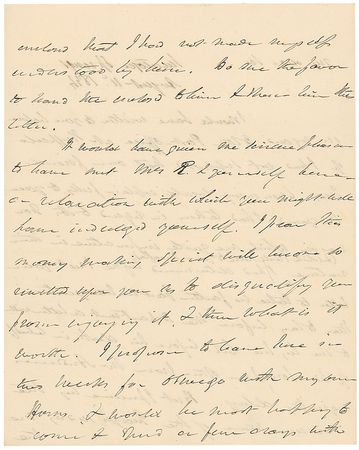 enclosed that I had not made myself
understood by him. Do me the favor
to hand the enclosed to him & show him the
letter.
It would have given me sincere pleasure
to have met Mrs R & yourself here
a relaxation with which you might well
have indulged yourself. I fear this
money making spirit will become so
riveted upon you as to disqualify you
from enjoying it, & then what is it
worth. I propose to leave here in
two weeks for Oswego with my own
Horses, & would be most happy to
come & spend a few days with